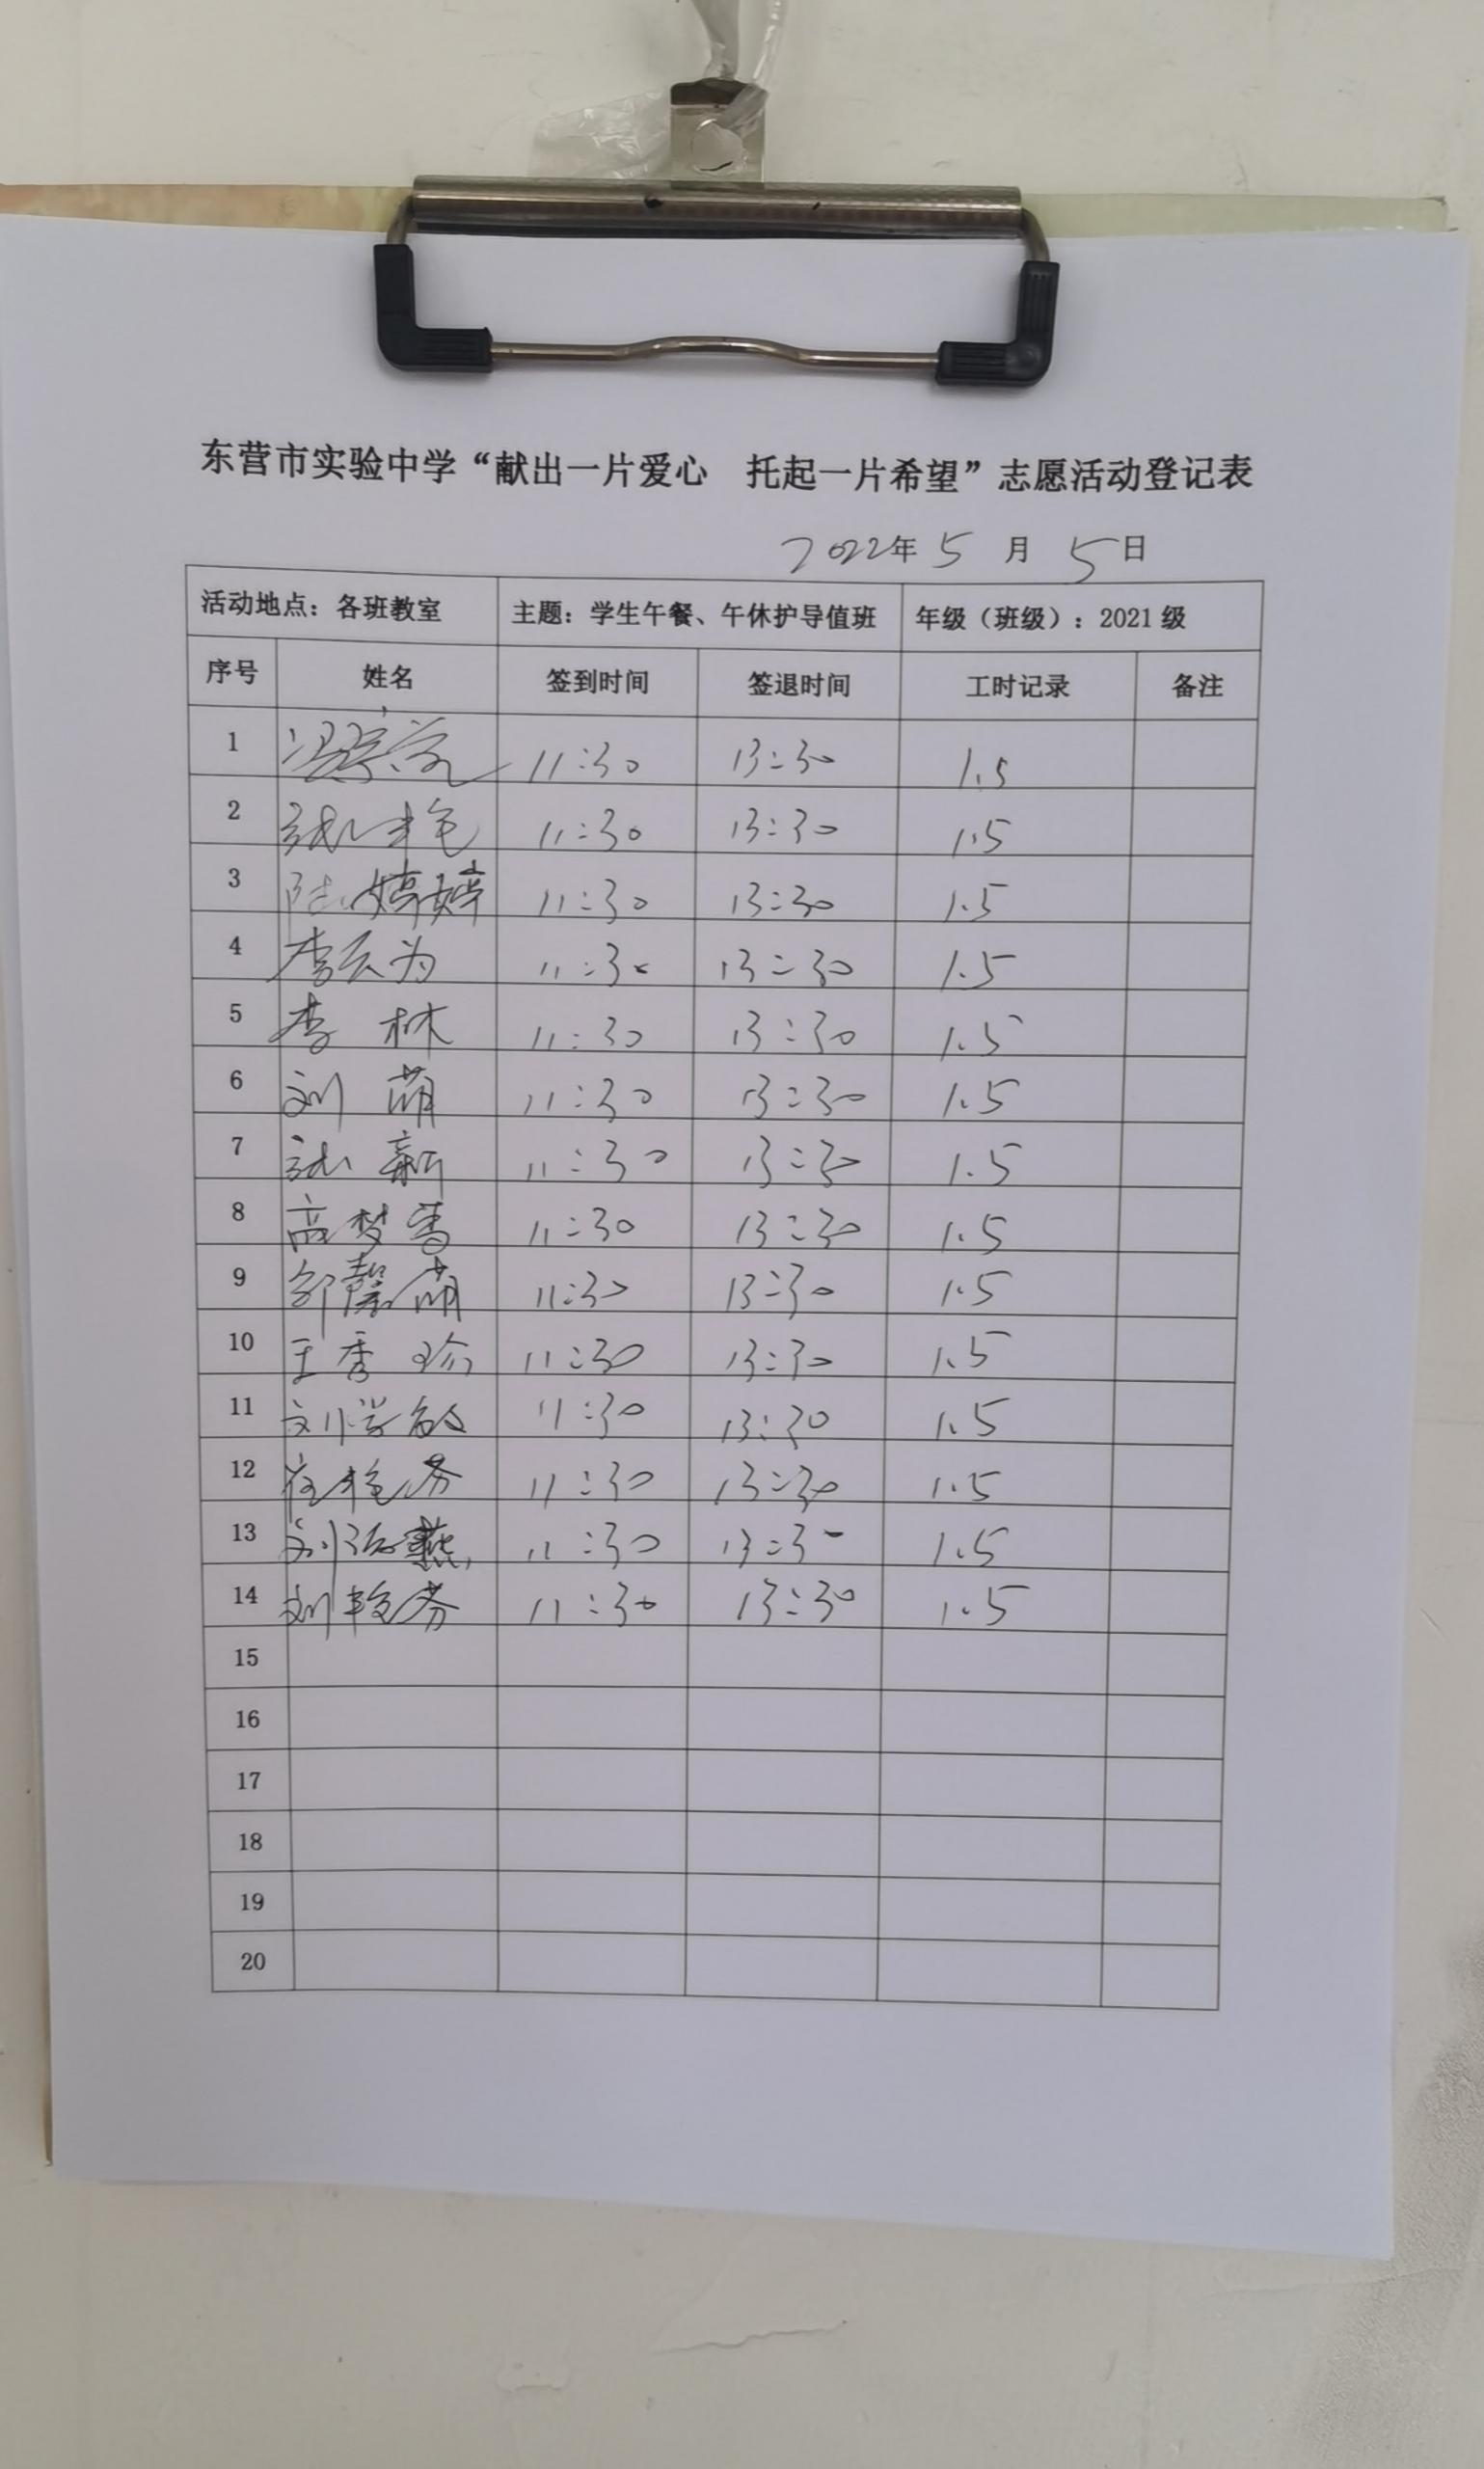 东营市实验中学“献出一片爱心　托起一片希望”志愿活动登记表
2022年 5 月 5日
活动地点：各班教室 主题：学生午餐、午休护导值班 年级（班级）：2021 级
序号 姓名 签到时间 签退时间 工时记录 备注
1 11:30 13:30 1.5
2 张艳 11:30 13:30 1.5
3 陆婷婷 11:30 13:30 1.5
4 李云为 11:30 13:30 1.5
5 李林 11:30 13:30 1.5
6 刘萌 11:30 13:30 1.5
7 张新 11:30 13:30 1.5
8 高梦雪 11:30 13:30 1.5
9 邹馨萌 11:30 13:30 1.5
10 王秀珍 11:30 13:30 1.5
11 刘学敏 11:30 13:30 1.5
12 崔艳芬 11:30 13:30 1.5
13 刘海燕 11:30 13:30 1.5
14 刘艳芬 11:30 13:30 1.5
15
16
17
18
19
20